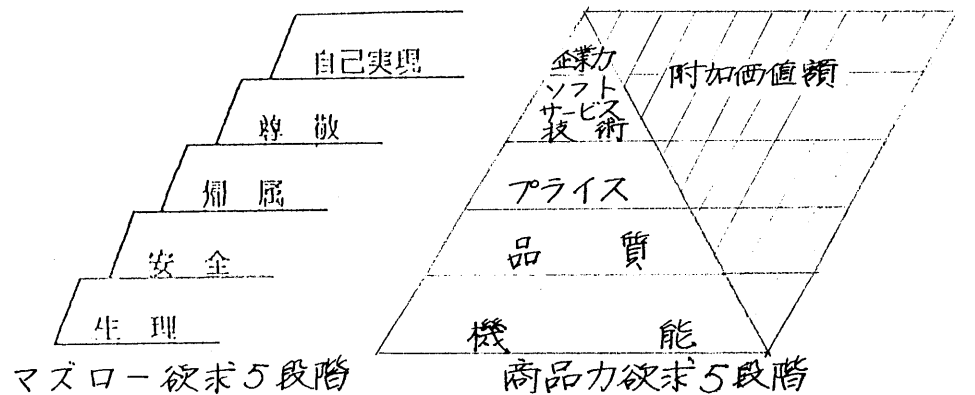 自己実現
尊敬
帰属
安全
生理
マズロー欲求5段階
企業力
ソフト
サービス
技術
プライス
品質
機能
附加価値額
商品力欲求5段階